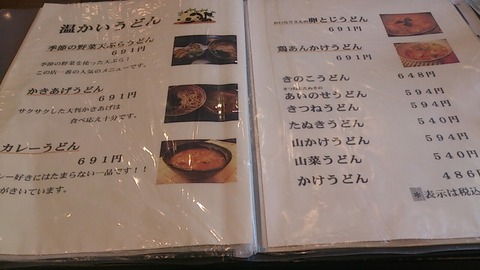 温かいうどん
季節の野菜天ぷらうどん
691円
季節の野菜を使った天ぷら！
この店一番の人気のメニューです。
かきあげうどん
691円
サクサクした大判かきあげは
食べ応え十分です。
カレーうどん
691円
レー好きにはたまらない一品です！！
がきいています。
卵とじうどん
691円
鶏あんかけうどん
691円
きのこうどん 648円
あいのせうどん 594円
きつねうどん 594円
たぬきうどん 540円
山かけうどん 594円
山菜うどん 540円
かけうどん 486
※表示は税込